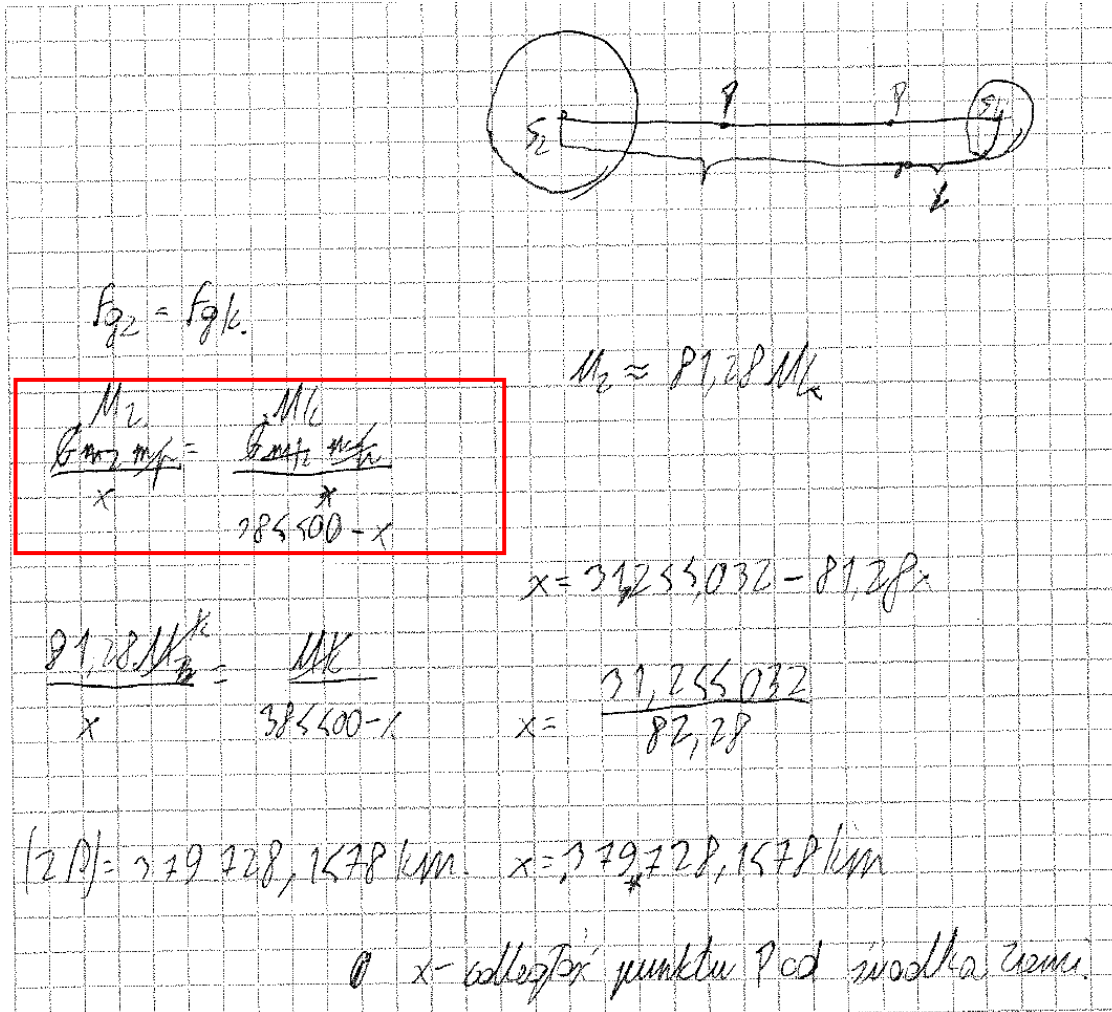 S_Z P P S_K
x
F_gz = F_gk.
M_Z ≈ 81,28 M_k
M_Z M_k
G m_z m_p / x = G m_k m_p / x
384400 - x
x = 31,244,032 - 81,28x
81,28 M_k / x = M_k / 384400 - x
x = 31,244 032 / 82,28
|ZP| = 379 728,1478 km. x = 379,728,1478 km
x - odległość punktu P od środka Ziemi.